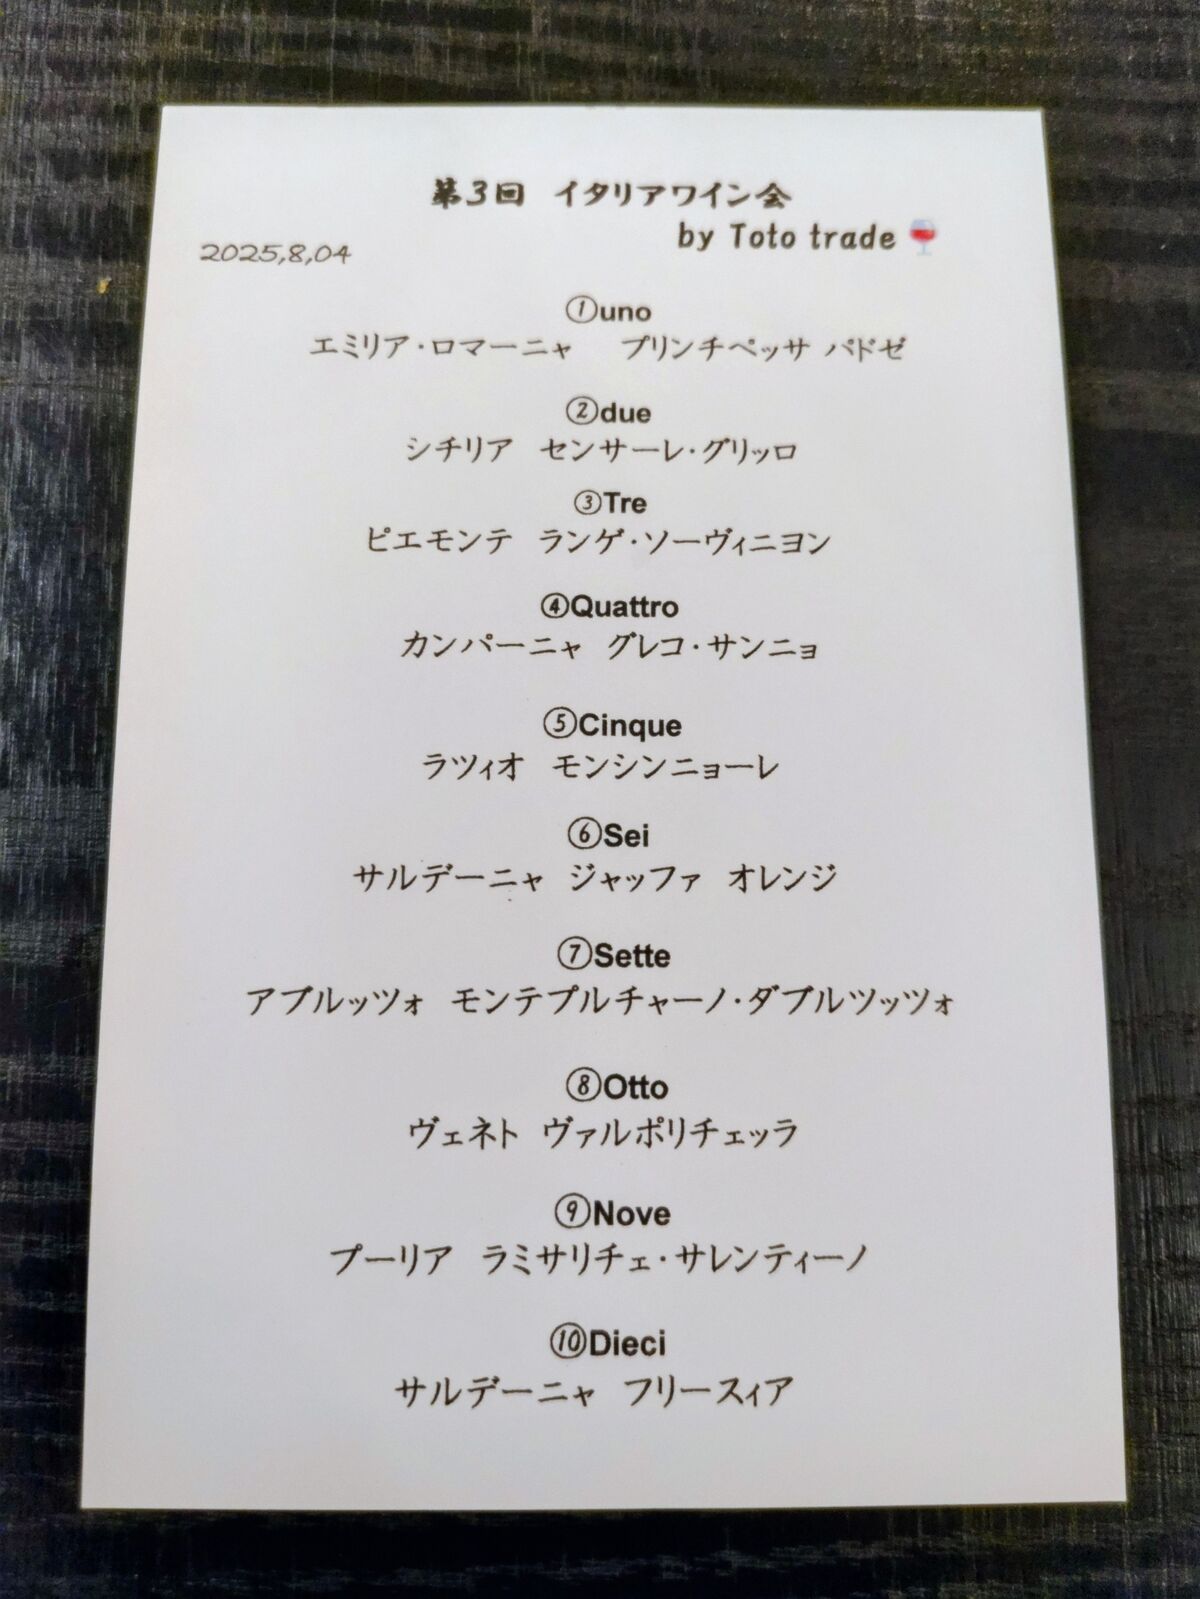 第3回 イタリアワイン会
by Toto trade🍷
2025,8,04
①uno
エミリア・ロマーニャ プリンチペッサ パドゼ
②due
シチリア センサーレ・グリッロ
③Tre
ピエモンテ ランゲ・ソーヴィニヨン
④Quattro
カンパーニャ グレコ・サンニョ
⑤Cinque
ラツィオ モンシンニョーレ
⑥Sei
サルデーニャ ジャッファ オレンジ
⑦Sette
アブルッツォ モンテプルチャーノ・ダブルツッツォ
⑧Otto
ヴェネト ヴァルポリチェッラ
⑨Nove
プーリア ラミサリチェ・サレンティーノ
⑩Dieci
サルデーニャ フリースィア